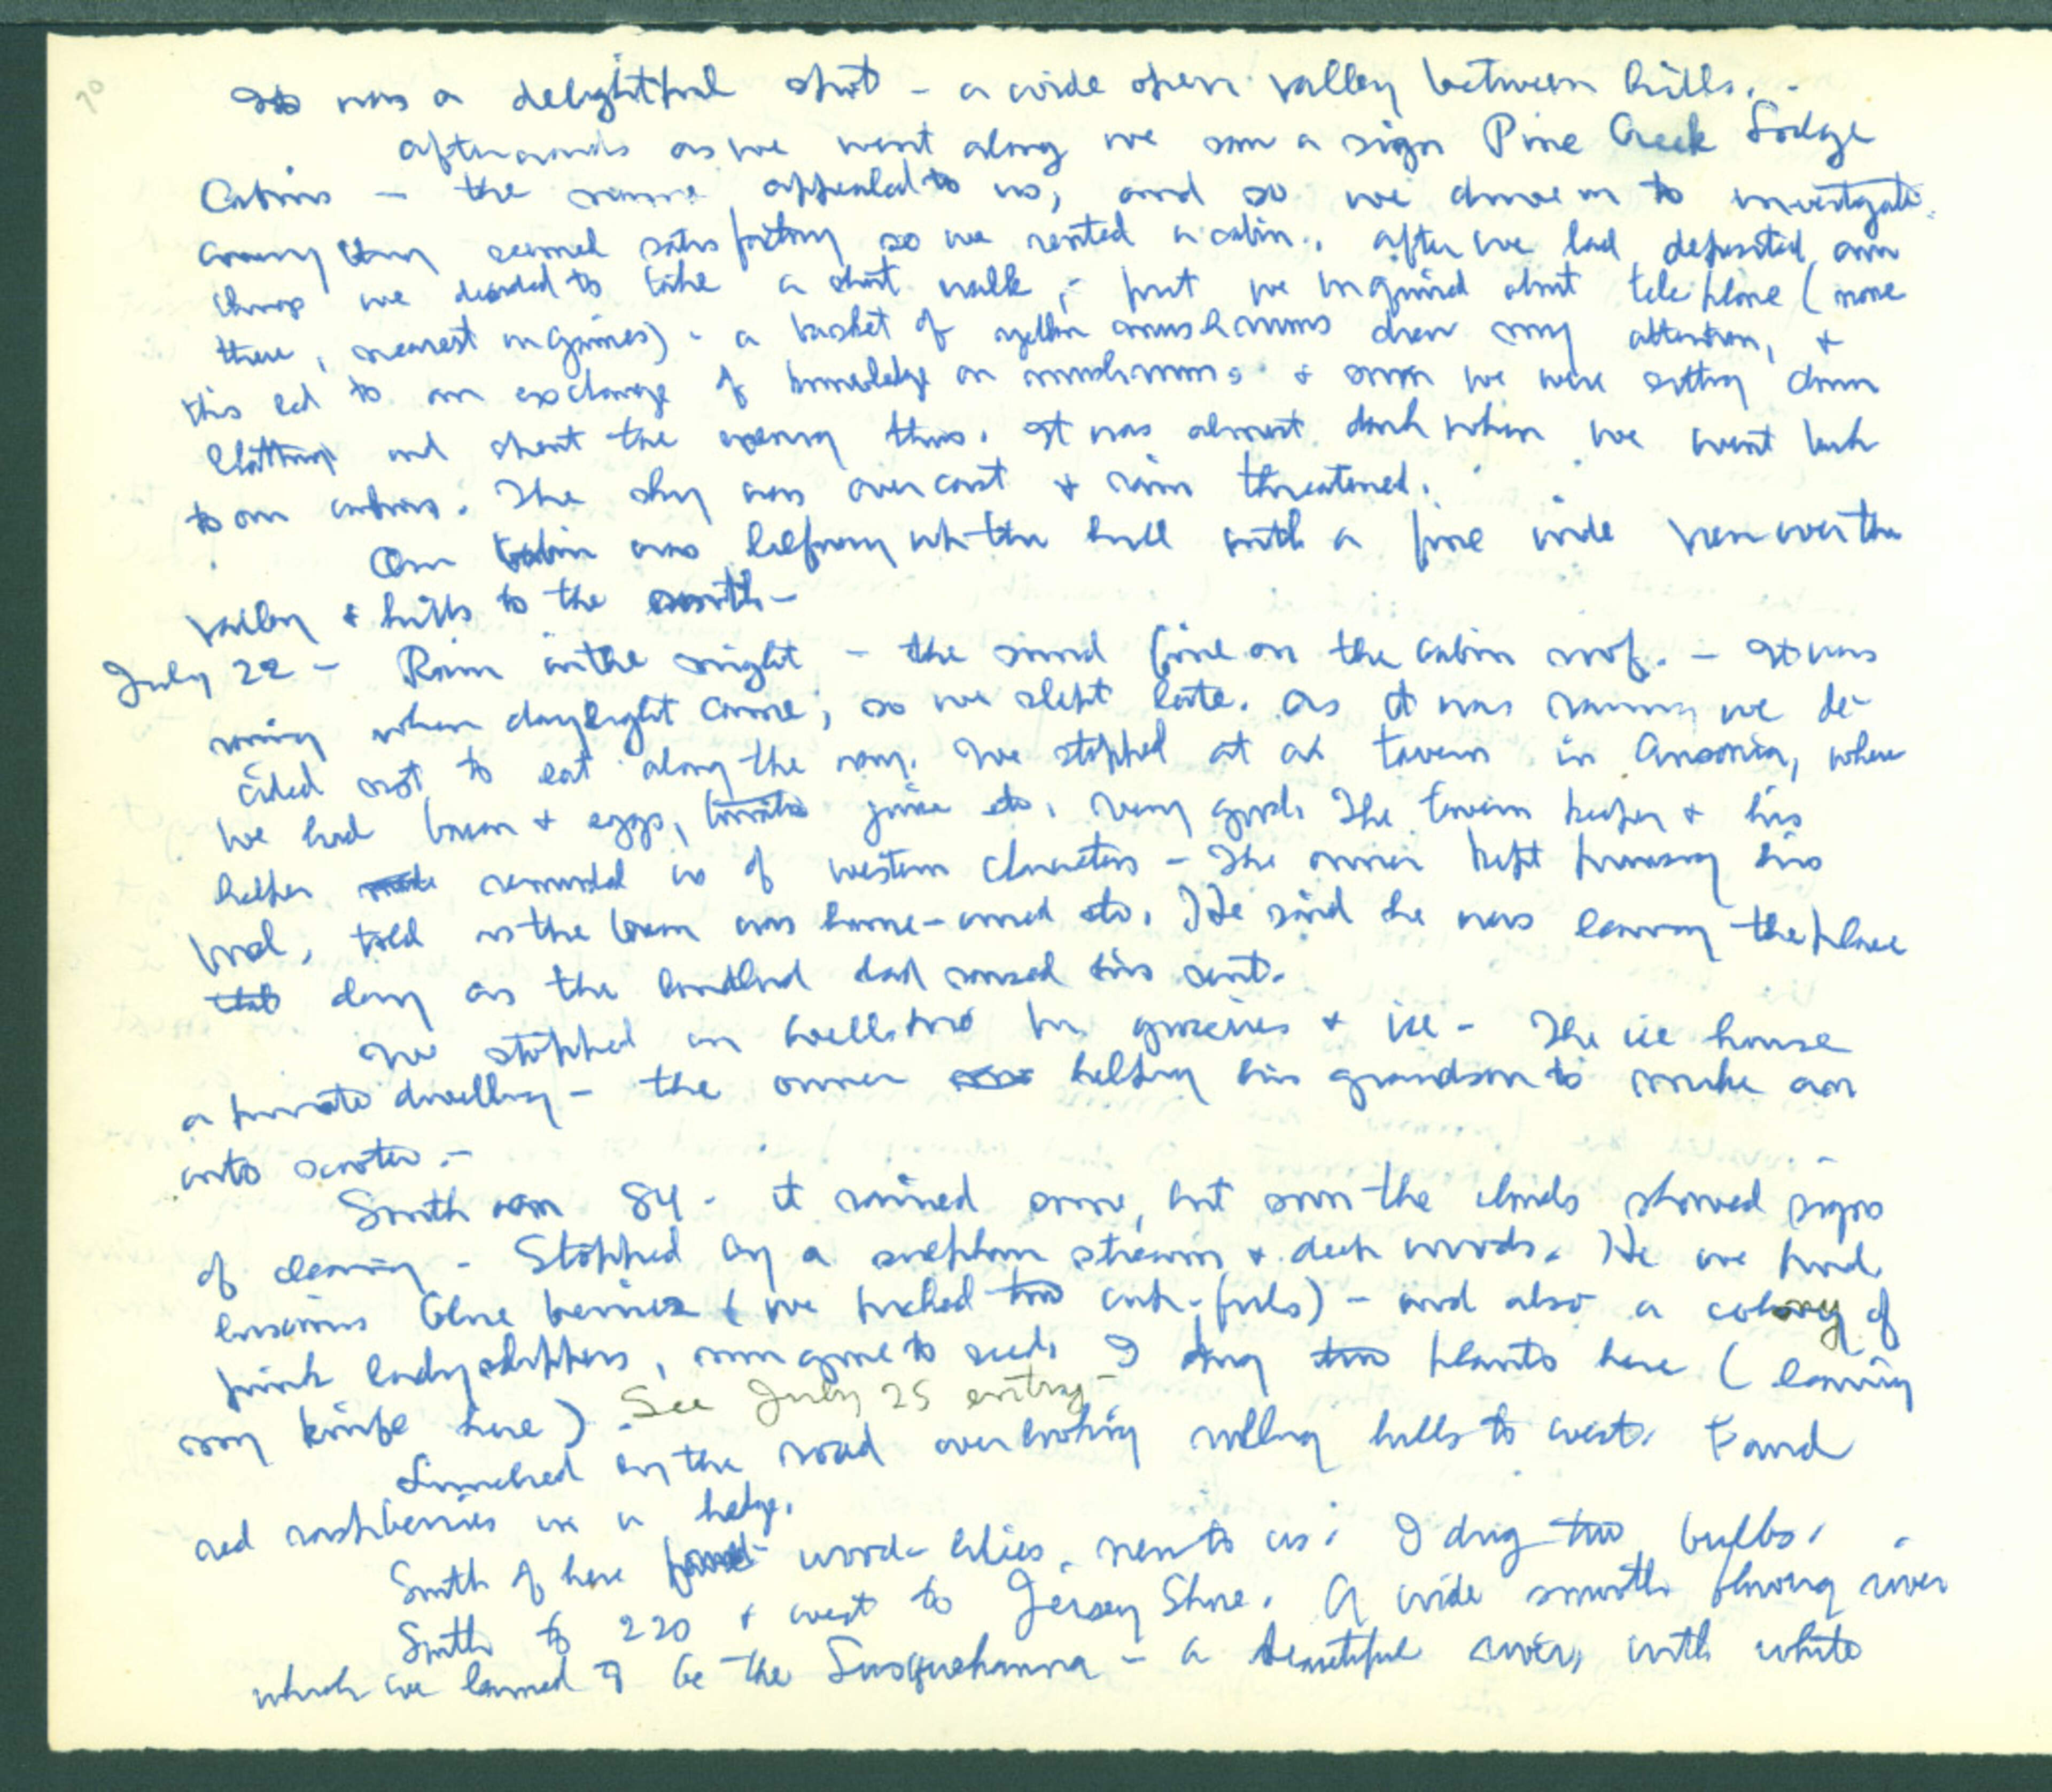 It was a delightful spot - a wide open valley between hills. -
Afterwards as we went along we saw a sign Pine Creek Lodge
Cabins - the name appealed to us, and so we drove in to investigate.
Everything seemed satisfactory so we rented a cabin. After we had deposited our
things we decided to take a short walk, - first we inquired about telephone (none
there, nearest in Gaines) - a basket of yellow mushrooms drew my attention, &
this led to an exchange of knowledge on mushrooms & soon we were sitting down
chatting and spent the evening thus. It was almost dark when we went back
to our cabins. The sky was overcast & rain threatened.
Our cabin was halfway up the hill with a fine wide view over the
valley & hills to the north -
July 22 - Rain in the night - the sound fine on the cabin roof. - It was
raining when daylight came, so we slept late. As it was raining we de-
cided not to eat along the way. We stopped at a tavern in Ansonia, where
we had bacon & eggs, tomato juice etc. Very good. The tavern keeper & his
helper reminded us of western characters - The owner kept praising his
food, told us the bacon was home-cured etc. He said he was leaving the place
that day as the landlord had raised his rent.
We stopped in Wellsboro for groceries & ice - The ice house
a private dwelling - the owner helping his grandson to make an
auto scooter. -
South on 84 - it rained some, but soon the clouds showed signs
of clearing - Stopped by a stream & deep woods. Here we found
luscious blue berries (we picked two cup-fuls) - and also a colony of
pink lady slippers, now gone to seed. I dug two plants here (leaving
my knife here) - See July 25 entry -
Lunched by the road overlooking rolling hills to west. Found
red raspberries in a hedge.
South of here found wood-lilies - new to us. I dug two bulbs. -
South to 220 & west to Jersey Shore. A wide smooth flowing river
which we learned to be the Susquehanna - a beautiful river, with white